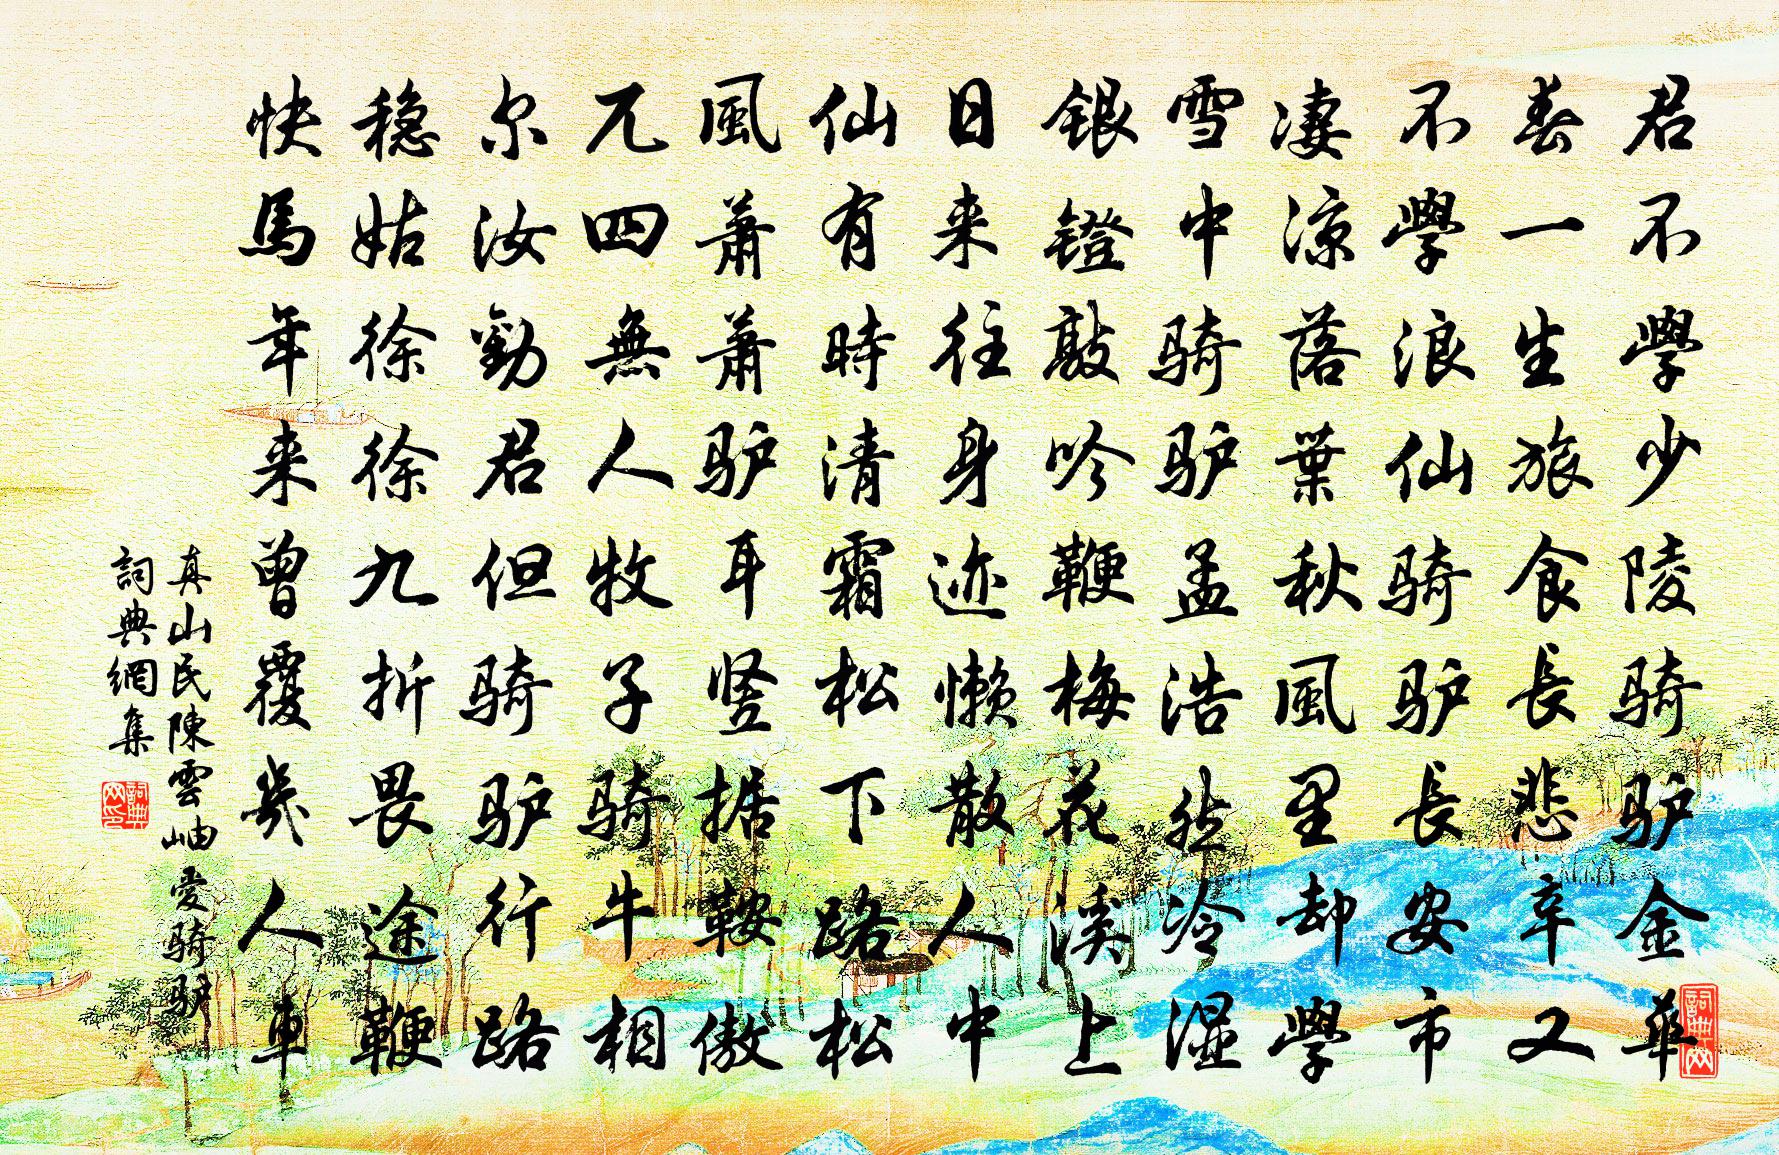 君不學少陵骑驴金華
春一生旅食長悲辛又
不學浪仙骑驴長安市
凄凉落葉秋風里却學
雪中骑驴孟浩然冷湿
银镫敲吟鞭梅花溪上
日来往身迹懒散人中
仙有時清霜松下路松
風萧萧驴耳竖据鞍傲
兀四無人牧子骑牛相
尔汝勸君但骑驴行路
稳姑徐徐九折畏途鞭
快馬年来曾覆幾人車
真山民陳雲岫愛骑驴
詞典網集